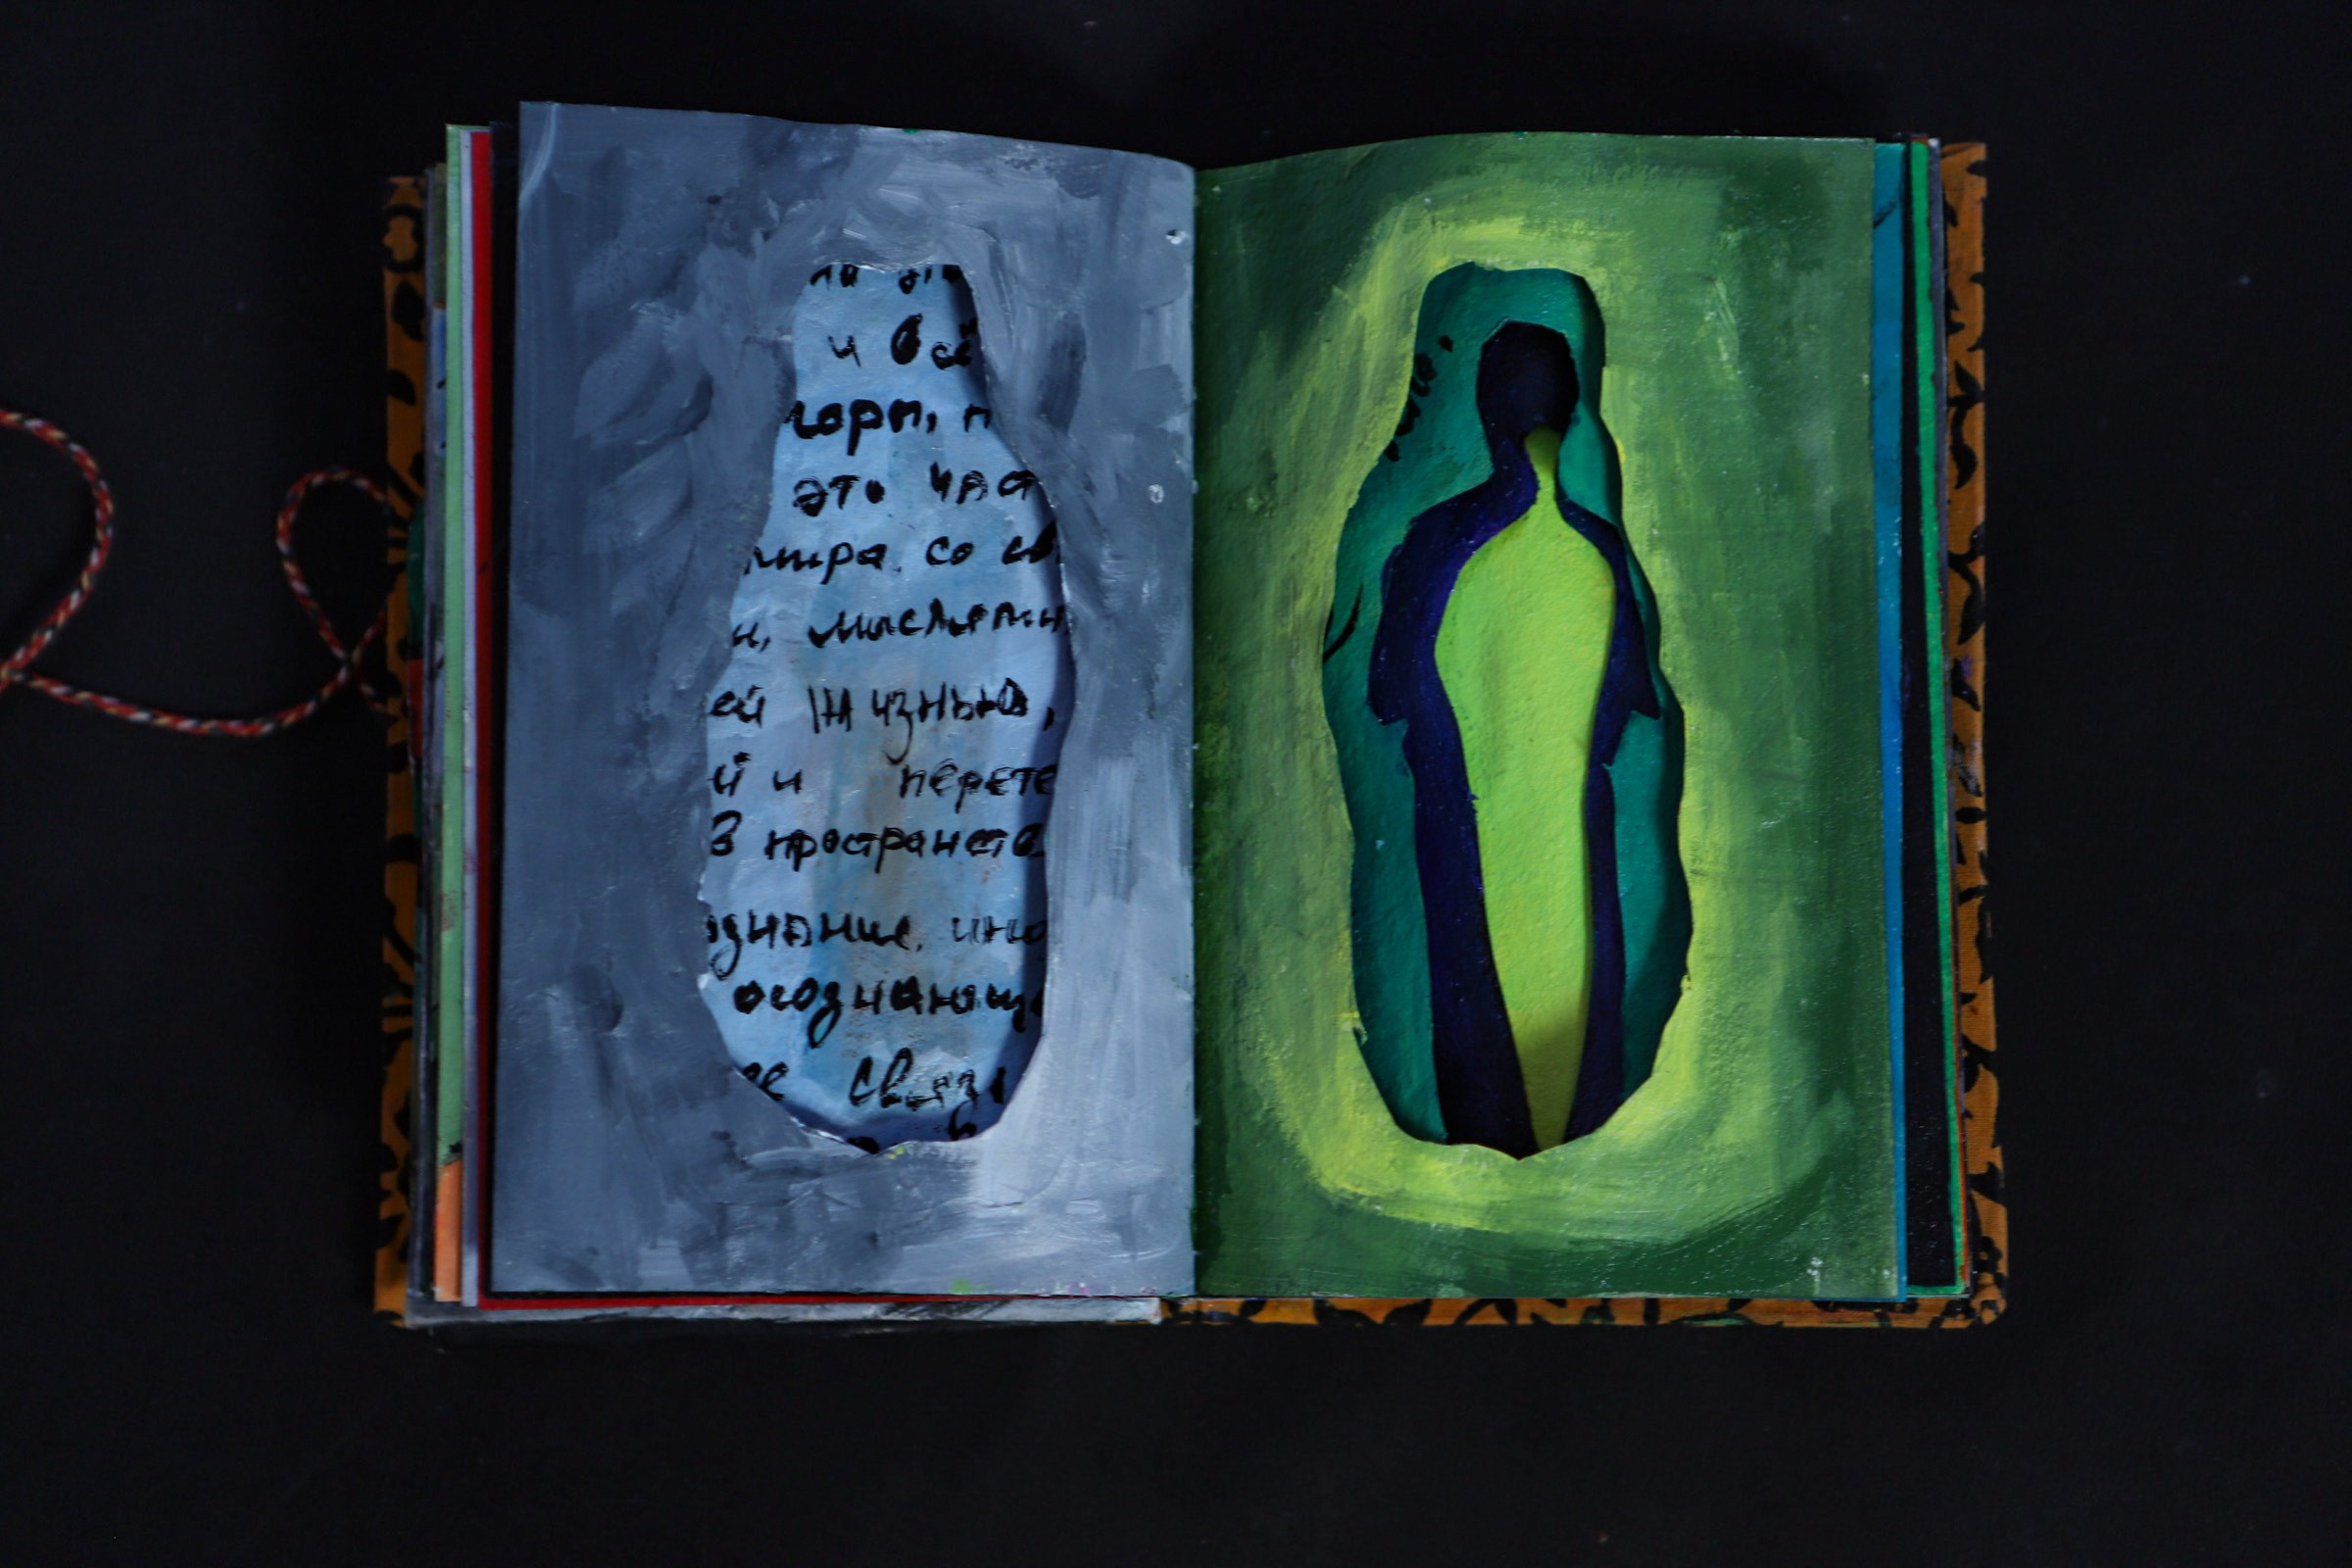 и всё
гори, п
это част
мира, со св
и, мыслями
ей жизнью,
й и перете
з пространств
знание, ино
осознающе
ее связь